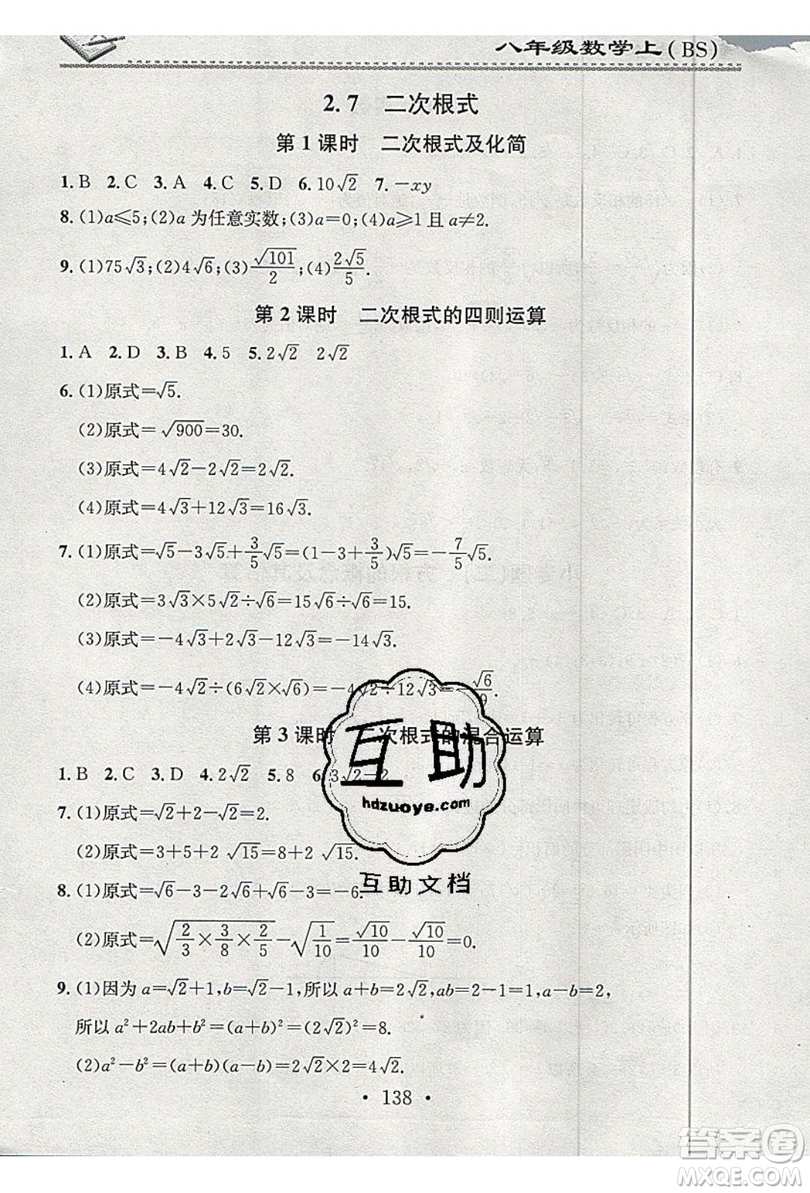 八年级数学上(BS)
2.7 二次根式
第1课时 二次根式及化简
1.B 2.C 3.A 4.C 5.D 6.10√2 7.-xy
8.(1)a≤5;(2)a为任意实数;(3)a=0;(4)a≥1且a≠2.
9.(1)75√3;(2)4√6;(3)√101/2;(4)2√5/5.
第2课时 二次根式的四则运算
1.A 2.D 3.B 4.5 5.2√2 2√2
6.(1)原式=√5.
(2)原式=√900=30.
(3)原式=4√2-2√2=2√2.
(4)原式=4√3+12√3=16√3.
7.(1)原式=√5-3√5+3/5√5=(1-3+3/5)√5=-7/5√5.
(2)原式=3√3×5√2÷√6=15√6÷√6=15.
(3)原式=-4√3+2√3-12√3=-14√3.
(4)原式=-4√2÷(6√2×√6)=-4√2÷12√3=-√6/9.
第3课时 二次根式的混合运算
1.B 2.C 3.D 4.2√2 5.8 6.3√2-2
7.(1)原式=√2+2-√2=2.
(2)原式=3+5+2√15=8+2√15.
8.(1)原式=√6-3-2√6-3+√6=-6.
(2)原式=√(2/3×3/8×2/5)-√(1/10)=√10/10-√10/10=0.
9.(1)因为a=√2+1,b=√2-1,所以a+b=2√2,ab=2-1=1,a-b=2,
所以a²+2ab+b²=(a+b)²=(2√2)²=8.
(2)a²-b²=(a+b)(a-b)=2√2×2=4√2.
· 138 ·
互助
hdzuoye.com
互助文档
答案圈
MXQE.COM